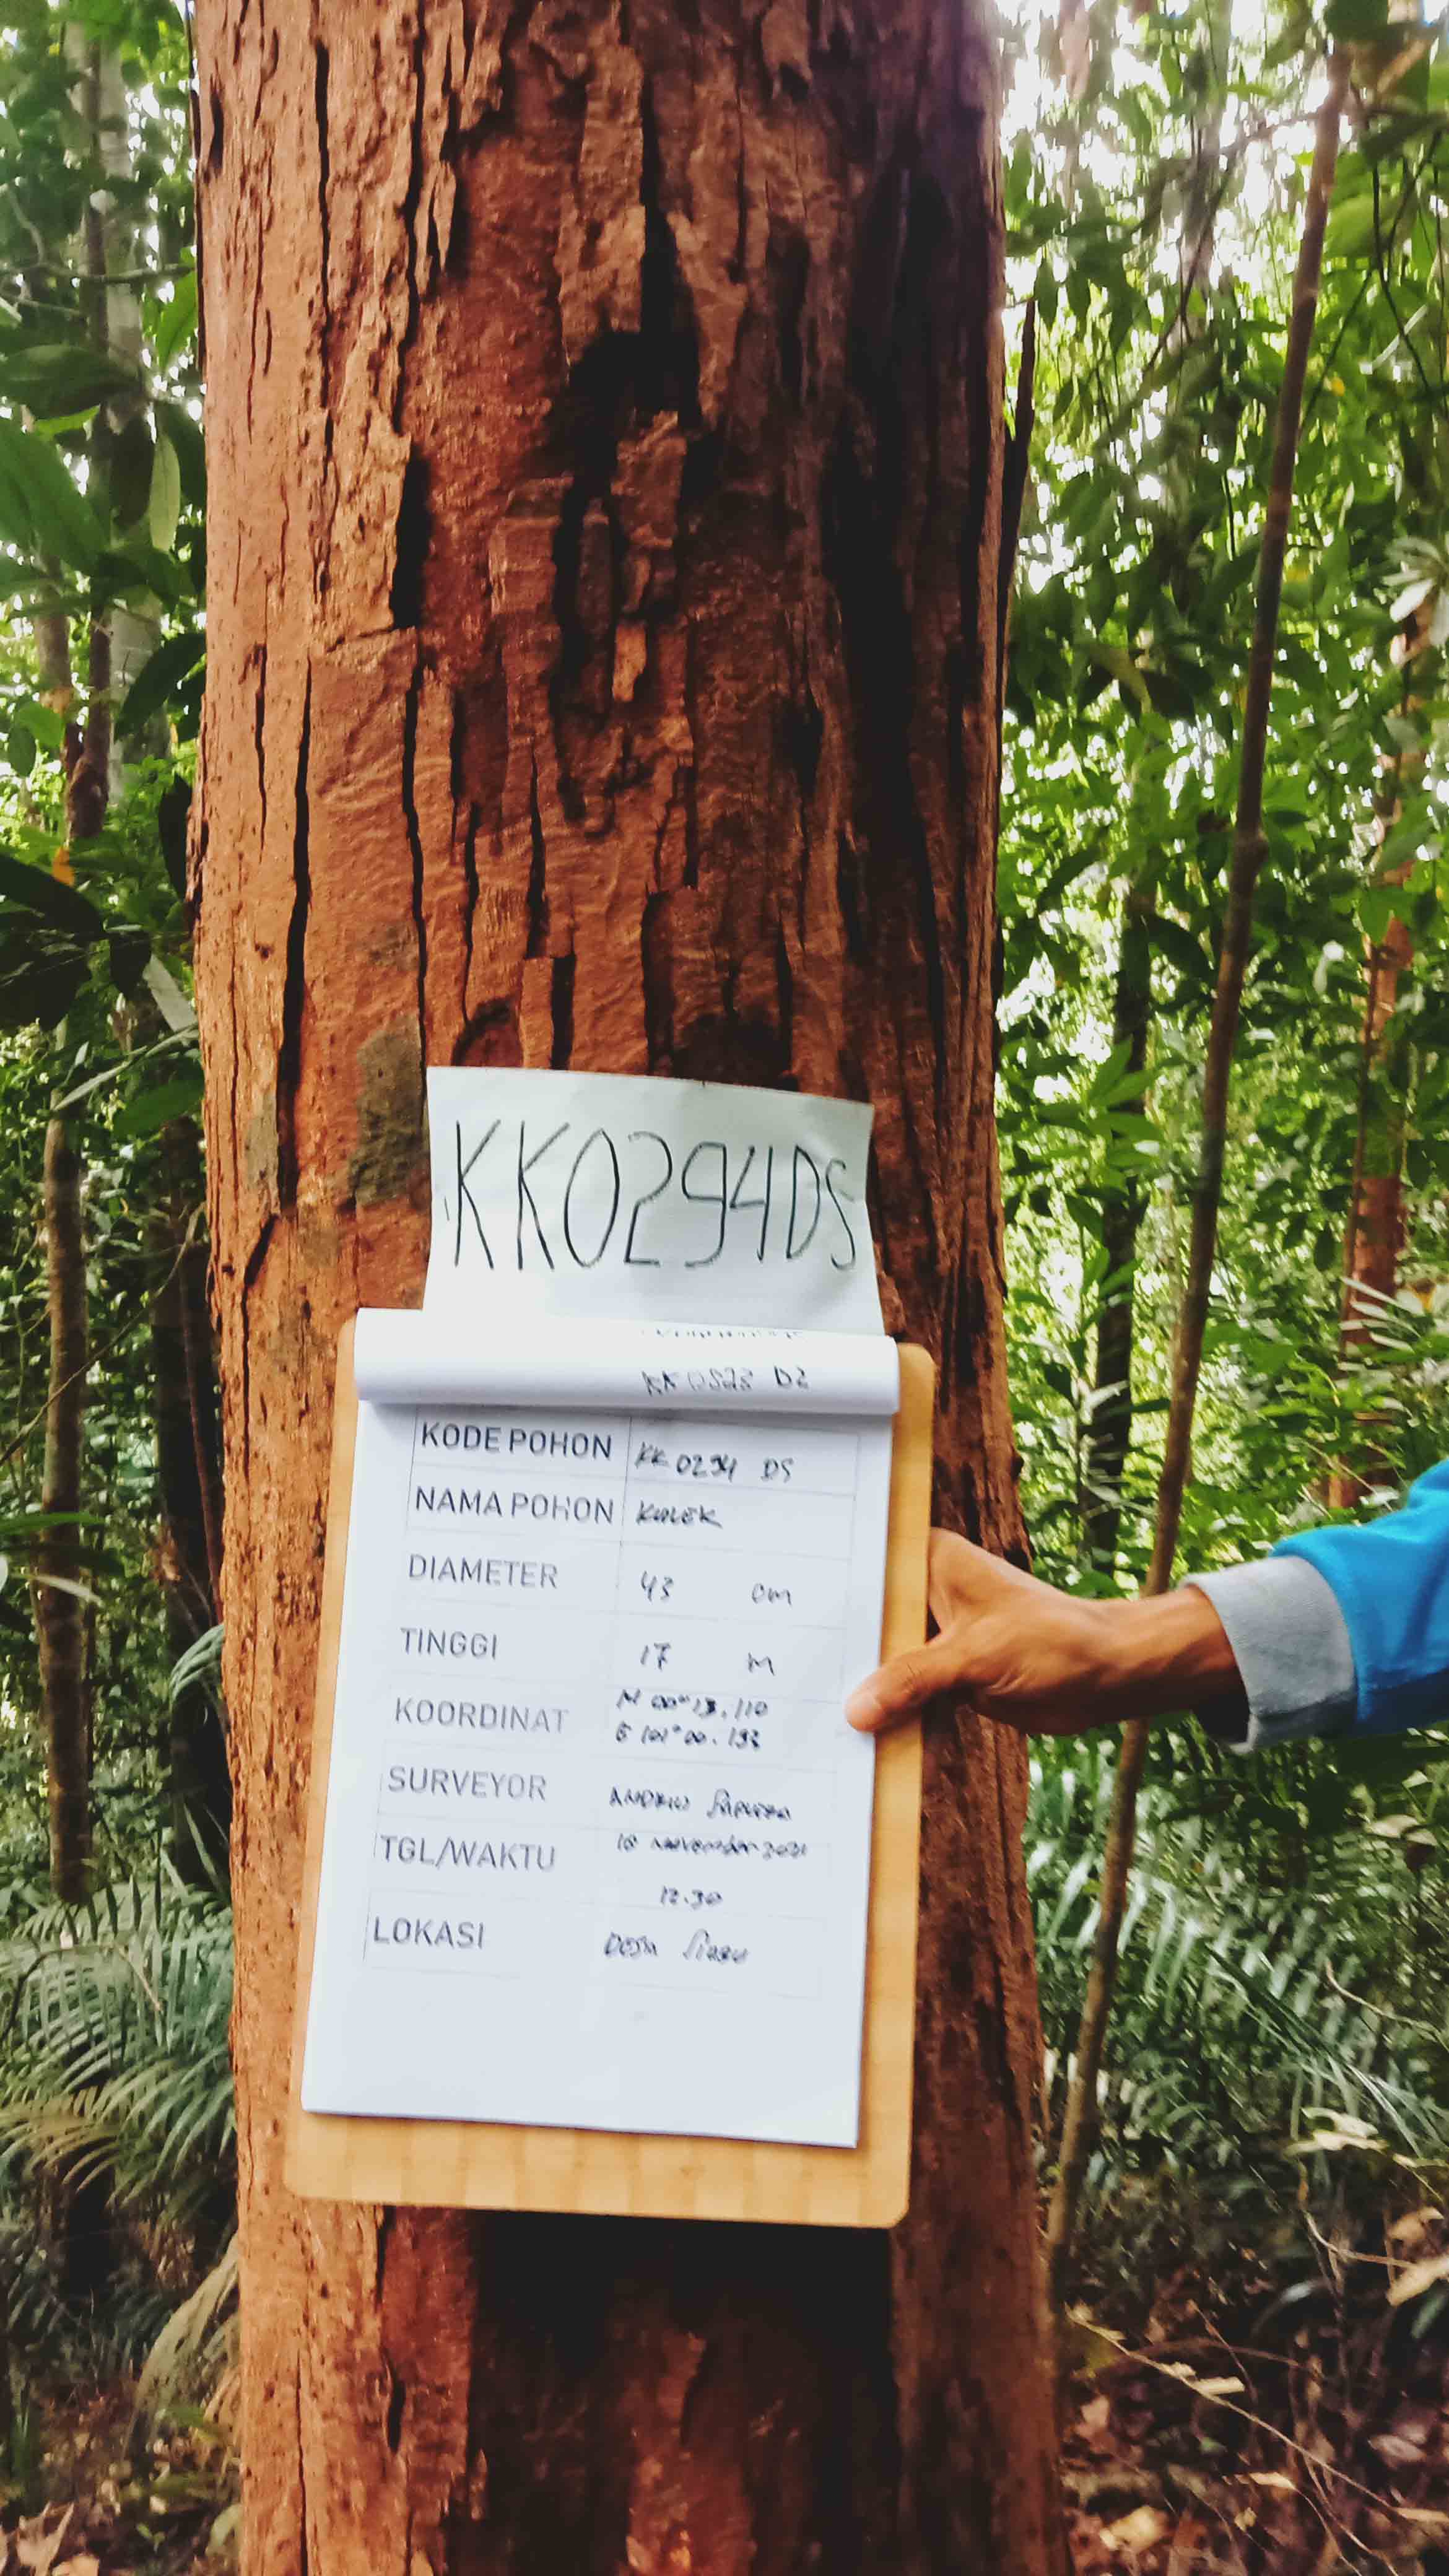 KK0294DS
KK 0523 D2
KODE POHON KK 0294 DS
NAMA POHON KULEK
DIAMETER 43 cm
TINGGI 17 M
KOORDINAT N 00° 13.110
E 101° 00. 193
SURVEYOR
TGL/WAKTU 18 November 2021
12.30
LOKASI DESA